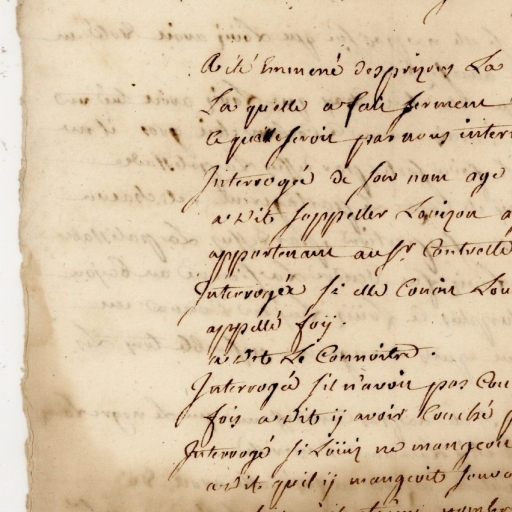 a été Emmené des prisons La
La quelle a fait serment
ce quelle seroit par nous inter
Interrogée de son nom age
a dit sappeller Louizon a
appartenant au Sr. Controlle
Interrogée si elle Conoit Lou
appellé foÿ.
a dit Le Connoitre.
Interrogé sil n'avoit pas Cou
fois a dit ÿ avoir Couché p
Interrogé si Loüis ne mangeoit
a dit quil ÿ mangeoit souv
nombre